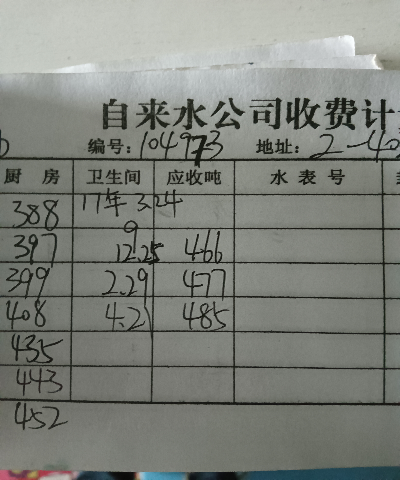 自来水公司收费计
编号: 104973 地址: 2-40
厨 房 卫生间 应收吨 水 表 号
388 17年 3.24
397 9 12.25 466
399 2.29 477
408 4.21 485
435
443
452